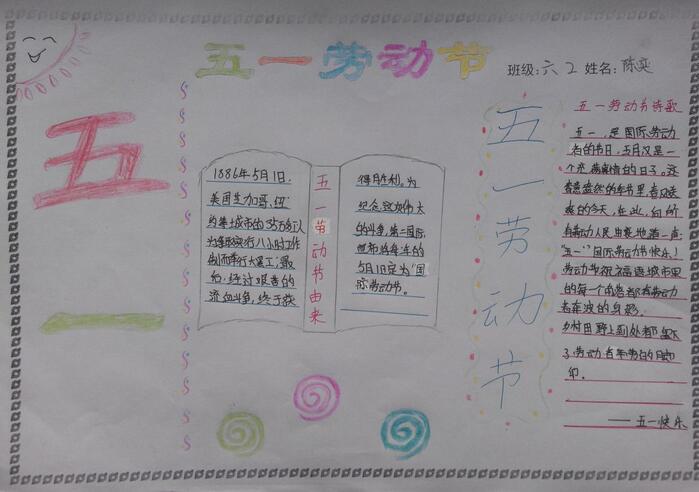 五一劳动节
班级:六2 姓名:陈奕
五一
1886年5月1日,
美国芝加哥、纽
约等大城市的35万名工人
为争取实行八小时工作
制而举行大罢工;最
后,经过艰苦的
流血斗争,终于获
五一劳动节由来
得月生利。为
纪念这次伟大
的斗争,第二国际
宣布将每年的
5月1日定为“国
际劳动节。
五一劳动节
五一劳动节诗歌
五一,是国际劳动
者的节日,五月又是一
个充满激情的日子。这
的今天,在此,向所
有劳动人民由衷地道一声:
“五一”国际劳动节快乐!
劳动节祝福遍城里
的每一个角落都有劳动
者奔波的身影。
乡村田野上到处都留下
了劳动者辛劳的脚
印。
——五一快乐